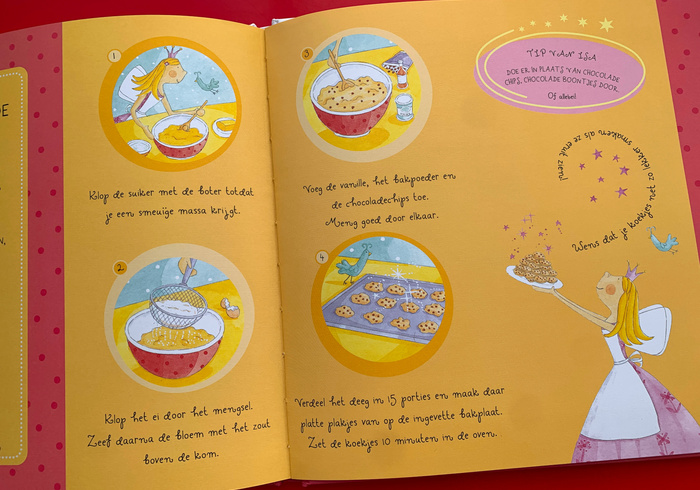 DE
N,
1
Klop de suiker met de boter totdat
je een smeuïge massa krijgt.
2
Klop het ei door het mengsel.
Zeef daarna de bloem met het zout
boven de kom.
3
Voeg de vanille, het bakpoeder en
de chocoladechips toe.
Meng goed door elkaar.
4
Verdeel het deeg in 15 porties en maak daar
platte plakjes van op de ingevette bakplaat.
Zet de koekjes 10 minuten in de oven.
TIP VAN ISA
DOE ER IN PLAATS VAN CHOCOLADE
CHIPS, CHOCOLADE BOONTJES DOOR.
Of allebei!
Wens dat je koekjes net zo lekker smaken als ze eruit zien!